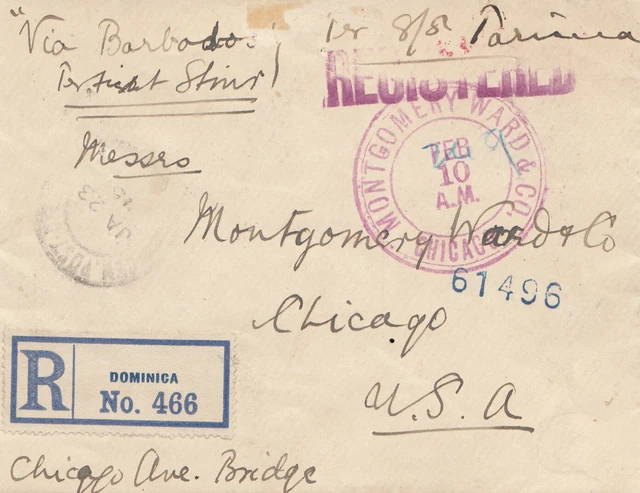 "Via Barbados" per S/S Parima
per first Stmr
REGISTERED
Messrs
MONTGOMERY WARD & CO.
FEB
10
A.M.
CHICAGO
JA 23
15
Montgomery Ward & Co
61496
Chicago
R
DOMINICA
No. 466
U.S.A
Chicago Ave. Bridge